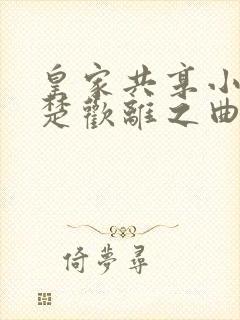 皇家共享小
楚歡離之曲
倚夢尋